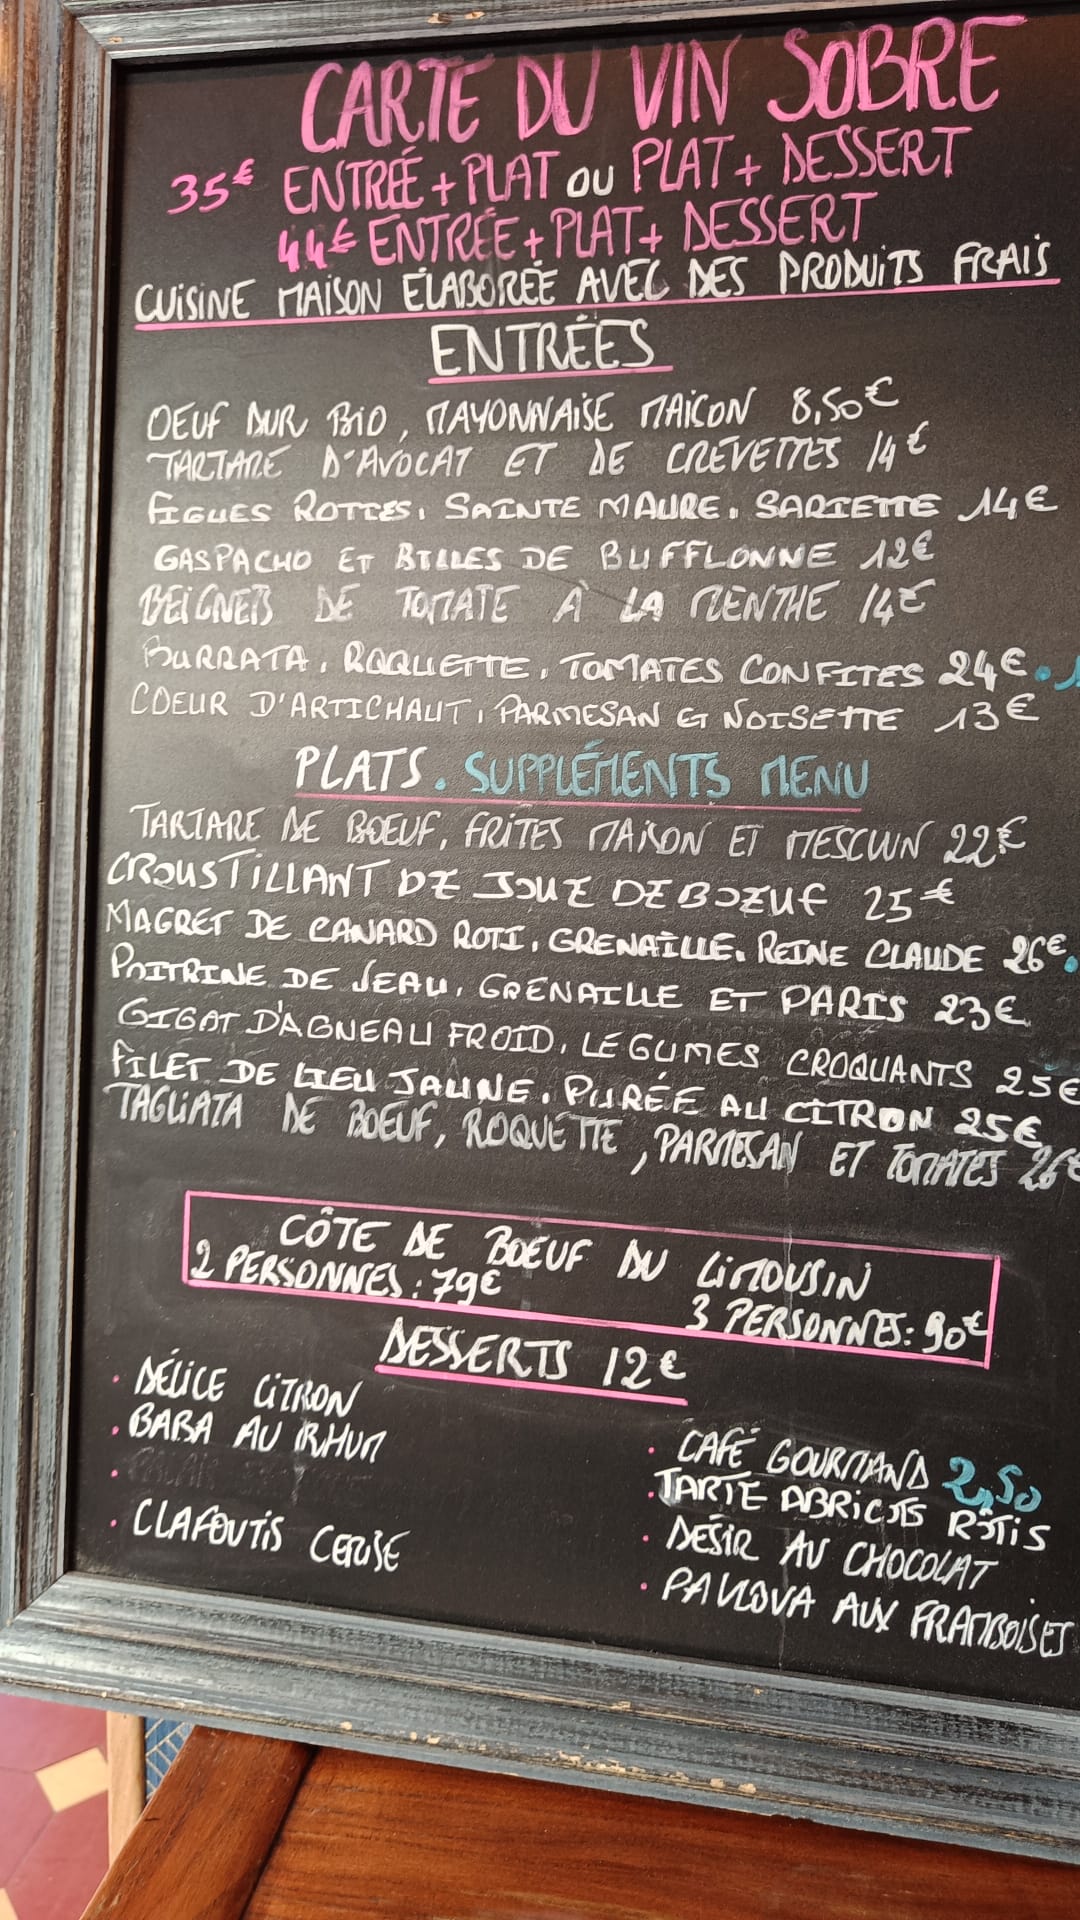 CARTE DU VIN SOBRE
35€ ENTRÉE + PLAT OU PLAT + DESSERT
44€ ENTRÉE + PLAT + DESSERT
CUISINE MAISON ÉLABORÉE AVEC DES PRODUITS FRAIS
ENTRÉES
OEUF DUR BIO, MAYONNAISE MAISON 8,50€
TARTARE D'AVOCAT ET DE CREVETTES 14€
FIGUES ROTIES, SAINTE MAURE, SARIETTE 14€
GASPACHO ET BILLES DE BUFFLONNE 12€
BEIGNETS DE TOMATE À LA MENTHE 14€
BURRATA, ROQUETTE, TOMATES CONFITES 24€.
COEUR D'ARTICHAUT, PARMESAN ET NOISETTE 13€
PLATS. SUPPLÉMENTS MENU
TARTARE DE BOEUF, FRITES MAISON ET MESCLUN 22€
CROUSTILLANT DE JOUE DE BOEUF 25€
MAGRET DE CANARD ROTI, GRENAILLE, REINE CLAUDE 26€.
POITRINE DE VEAU, GRENAILLE ET PARIS 23€
GIGOT D'AGNEAU FROID, LEGUMES CROQUANTS 25€
FILET DE LIEU JAUNE, PURÉE AU CITRON 25€
TAGLIATA DE BOEUF, ROQUETTE, PARMESAN ET TOMATES 26€
CÔTE DE BOEUF DU LIMOUSIN
2 PERSONNES : 79€
3 PERSONNES : 90€
DESSERTS 12€
. DÉLICE CITRON
. BABA AU RHUM
. CLAFOUTIS CERISE
. CAFÉ GOURMAND 2,50
. TARTE ABRICOTS RÔTIS
. DESIR AU CHOCOLAT
. PAVLOVA AUX FRAMBOISES